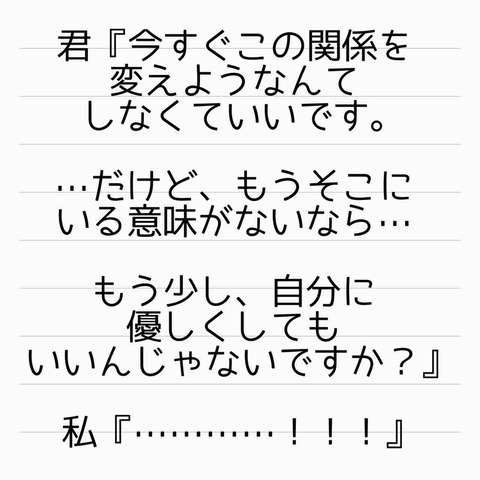 君『今すぐこの関係を
変えようなんて
しなくていいです。
…だけど、もうそこに
いる意味がないなら…
もう少し、自分に
優しくしても
いいんじゃないですか？』
私『…………！！！』